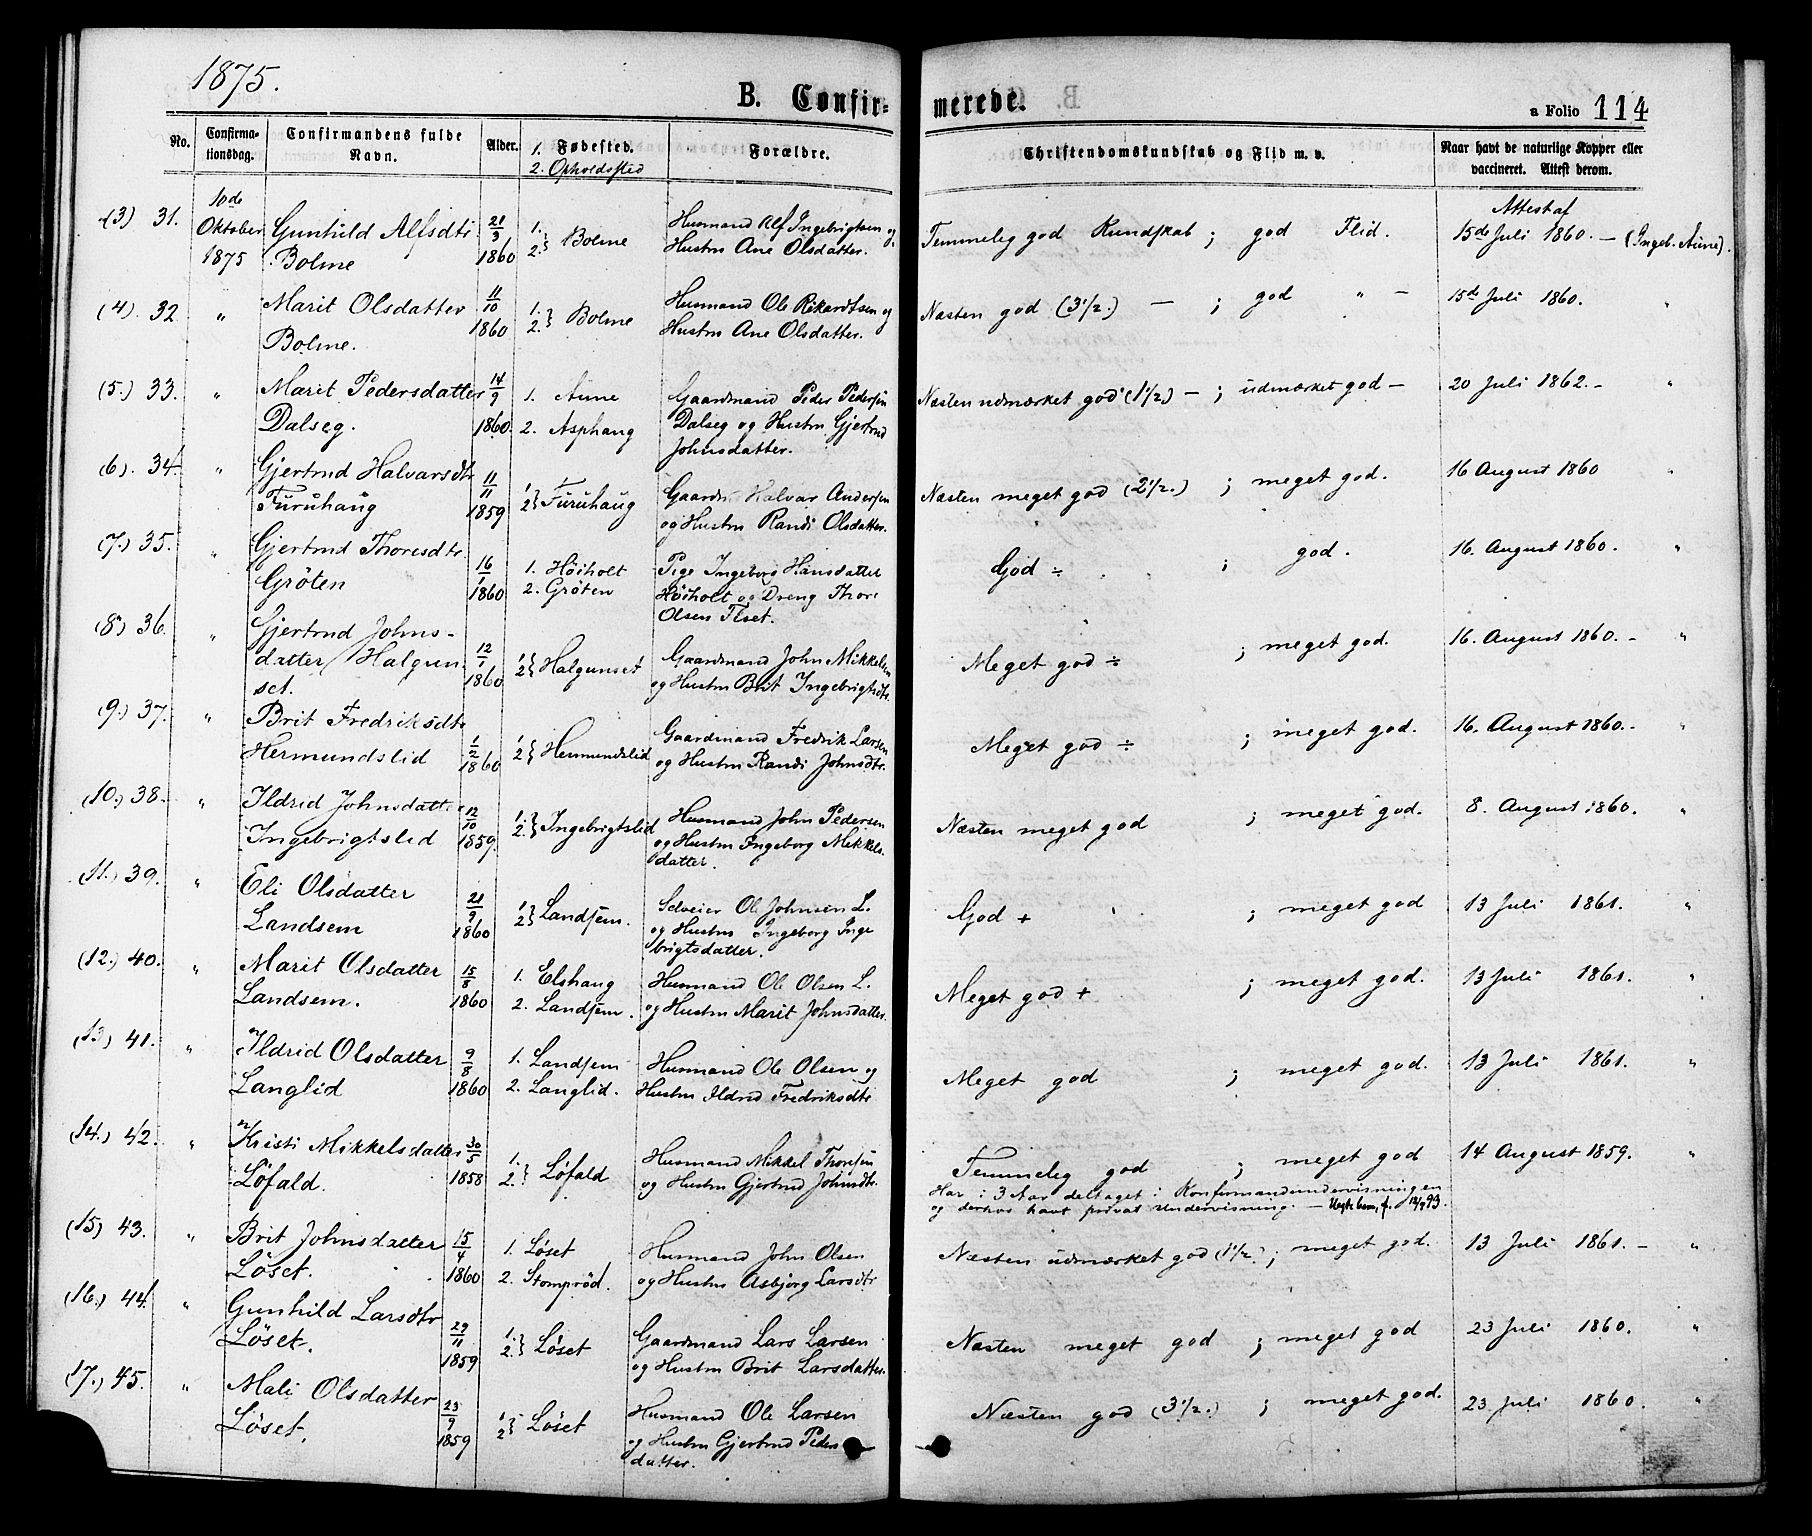 1875.
B. Confir-
merede.
a Folio 114
No.
Confirma-
tionsdag.
Confirmandens fulde
Navn.
Alder.
1. Fødested.
2. Opholdssted
Forældre.
Christendomskundskab og Flid m. v.
Naar havt de naturlige Kopper eller
vaccineret. Attest derom.
(3) 31.
10de
Oktober
1875
Gunhild Alfsdtr
Bolme
21/3
1860
1.
2. } Bolme
Husmand Alf Ingebrigtsen og
Hustru Ane Olsdatter.
Temmelig god Kundskab ; god Flid.
Attest af
15de Juli 1860. — (Ingeb. Aune).
(4). 32
"
Marit Olsdatter
Bolme.
11/10
1860
1.
2. } Bolme
Husmand Ole Rikardtsen og
Hustru Ane Olsdatter.
Næsten god (3 1/2.) — ; god " —
15d Juli 1860. "
(5.) 33.
"
Marit Pedersdatter
Dalseg.
14/9
1860.
1. Aune
2. Asphaug
Gaardmand Peder Pedersen
Dalseg og Hustru Gjertrud
Johnsdatter.
Næsten udmærket god (1 1/2.) — ; udmærket god —
20 Juli 1862. - "
(6). 34.
"
Gjertrud Halvarsdtr
Furuhaug
11/11
1859
1.
2 } Furuhaug
Gaardm Halvar Andersen
og Hustru Randi Olsdatter.
Næsten meget god (2 1/2.) ; meget god.
16 August 1860 "
(7.) 35.
"
Gjertrud Thoresdtr.
Gröten
16/1
1860
1. Höiholt
2. Gröten
Pige Ingeborg Hansdatter
Höiholt og Dreng Thore
Olsen Flset.
God ÷ ; god.
16. August 1860. "
(8) 36.
"
Gjertrud Johns-
datter Halgun-
set.
12/1
1860
1.
2 } Halgunset
Gaardmand John Mikkelsen
og Hustru Brit Ingebrigtsdtr.
Meget god ÷ ; meget god.
16. August 1860. - "
9.) 37.
"
Brit Fredriksdtr
Hermundslid
1/2
1860
1.
2 } Hermundslid
Gaardmand Fredrik Larsen
og Hustru Randi Johnsdtr.
Meget god ÷ ; meget god.
16. August 1860. - "
(10.) 38.
"
Ildrid Johnsdatter
Ingebrigtslid
12/10
1859.
1.
2. } Ingebrigtslid
Husmand John Pedersen
og Hustru Ingeborg Mikkels.
datter.
Næsten meget god ; meget god.
8. August 1860. "
(11.) 39.
"
Eli Olsdatter
Landsem
21/9
1860
1.
2 } Landsem.
Selveier Ole Johnsen L.
og Hustru Ingeborg Inge
brigtsdatter.
God + ; meget god
13 Juli 1861. "
(12.) 40.
"
Marit Olsdatter
Landsem.
15/8
1860
1. Elshaug
2. Landsem.
Husmand Ole Olsen L.
og Hustru Marit Johnsdatter.
Meget god + ; meget god.
13 Juli 1861. "
(13) 41.
"
Ildrid Olsdatter
Langlid
9/8
1860
1. Landsem
2. Langlid.
Husmand Ole Olsen og
Hustru Ildrid Fredriksdtr
Meget god ; meget god.
13 Juli 1861. "
(14.) 42.
"
Kristi Mikkelsdatter
Löfald.
30/5
1858
1.
2. } Löfald
Husmand Mikkel Thoresen
og Hustru Gjertrud Johnsdtr.
Temmelig god ; meget god
Har i 3 Aar deltaget i Konfirmandundervisningen
og derhos havt privat Undervisning. —
14 August 1859. "
(15) 43.
"
Brit Johnsdatter
Löset.
15/4
1860
1. Löset
2. Stomprød.
Husmand John Olsen
og Hustru Asbjørg Larsdtr
Næsten udmærket god (1 1/2.) ; meget god.
13 Juli 1861. — "
(16.) 44.
"
Gunhild Larsdtr
Löset.
29/11
1859
1.
2. } Löset
Gaardmand Lars Larsen
og Hustru Brit Larsdatter.
Næsten meget god ; meget god
23 Juli 1860. "
(17.) 45.
"
Mali Olsdatter
Löset.
23/9
1859
1.
2 } Löset
Husmand Ole Larsen
og Hustru Gjertrud Peders
datter.
Næsten god (3 1/2.) ; meget god.
23 Juli 1860. "